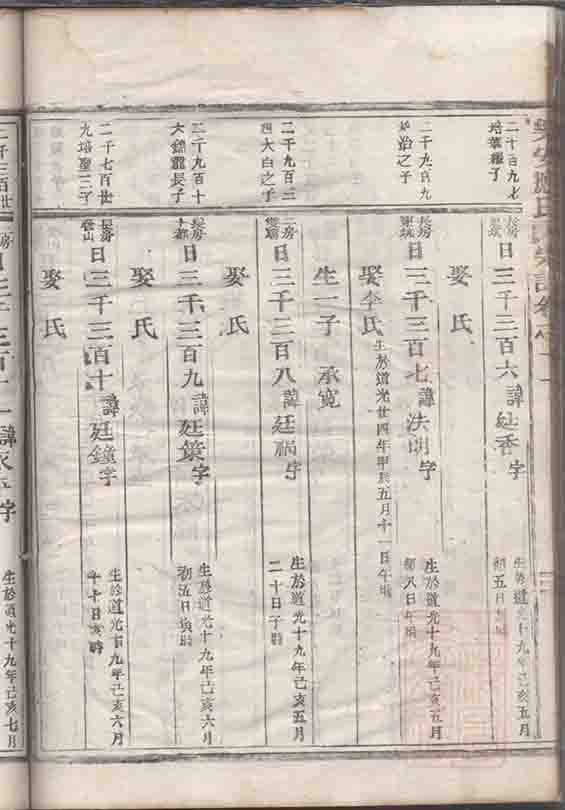 二千九百九七
培葉繼子
長房
日三千三百六諱廷香字
生於道光十九年己亥五月
初五日
娶氏
二千九百九
培治之子
長房
日三千三百七諱法明字
生於道光十九年己亥五月
初八日午時
娶李氏
生於道光廿四年甲辰五月十一日午時
生一子 承寬
二千九百三
大白之子
二房
日三千三百八諱廷禍字
生於道光十九年己亥五月
二十日子時
娶氏
二千九百十
六錦靈長子
長房
日三千三百九諱廷策字
生於道光十九年己亥六月
初五日時
娶氏
二千七百廿
九培聖二子
長房
日三千三百十諱廷鐘字
生於道光十九年己亥六月
日亥時
娶氏
二千三百廿
房
日三千三百十一諱永字
生於道光十九年己亥七月